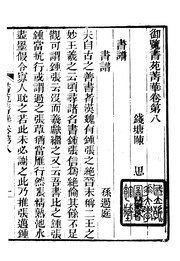 御覽書苑菁華卷第八
錢塘陳 思
書譜
書譜 孫過庭
夫自古之善書者漢魏有鍾張之絕晉末稱二王之
妙王羲之云頃尋諸名書鍾張信爲絕倫其餘不足
觀可謂鍾張云沒而羲獻繼之又云吾書比之鍾張
鍾當抗行或謂過之張草猶當鴈行然張精熟池水
盡墨假令寡人耽之若此未必謝之此乃推張邁鍾